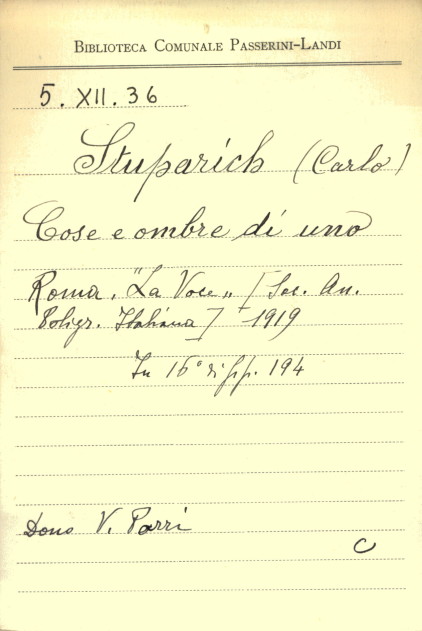 BIBLIOTECA COMUNALE PASSERINI-LANDI
5. XII. 36
Stuparich (Carlo)
Cose e ombre di uno
Roma, "La Voce„ [Soc. An.
Poligr. Italiana] 1919
In 16° di pp. 194
Dono V. Parri
C